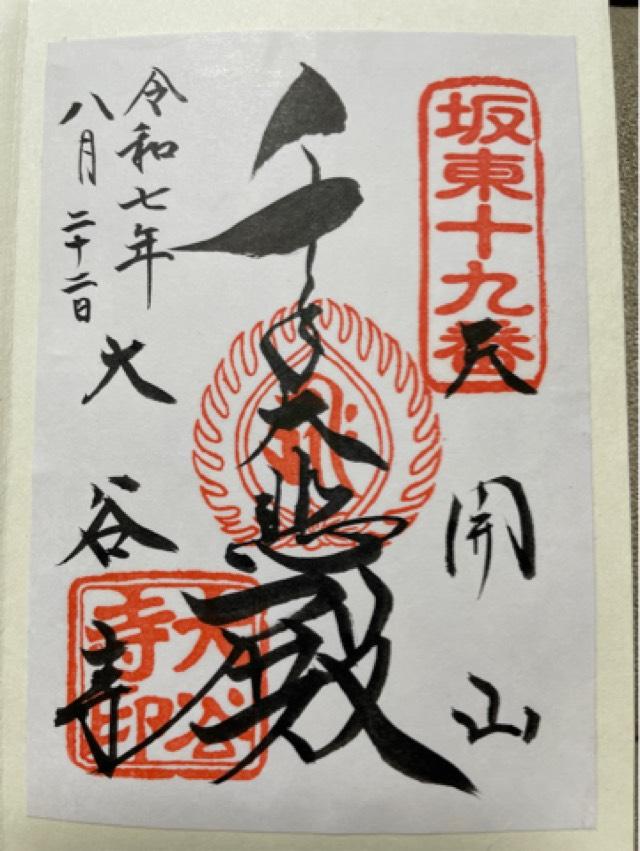 坂東十九番
天開山
千手大悲殿
令和七年
八月二十二日
大谷寺
大谷寺印